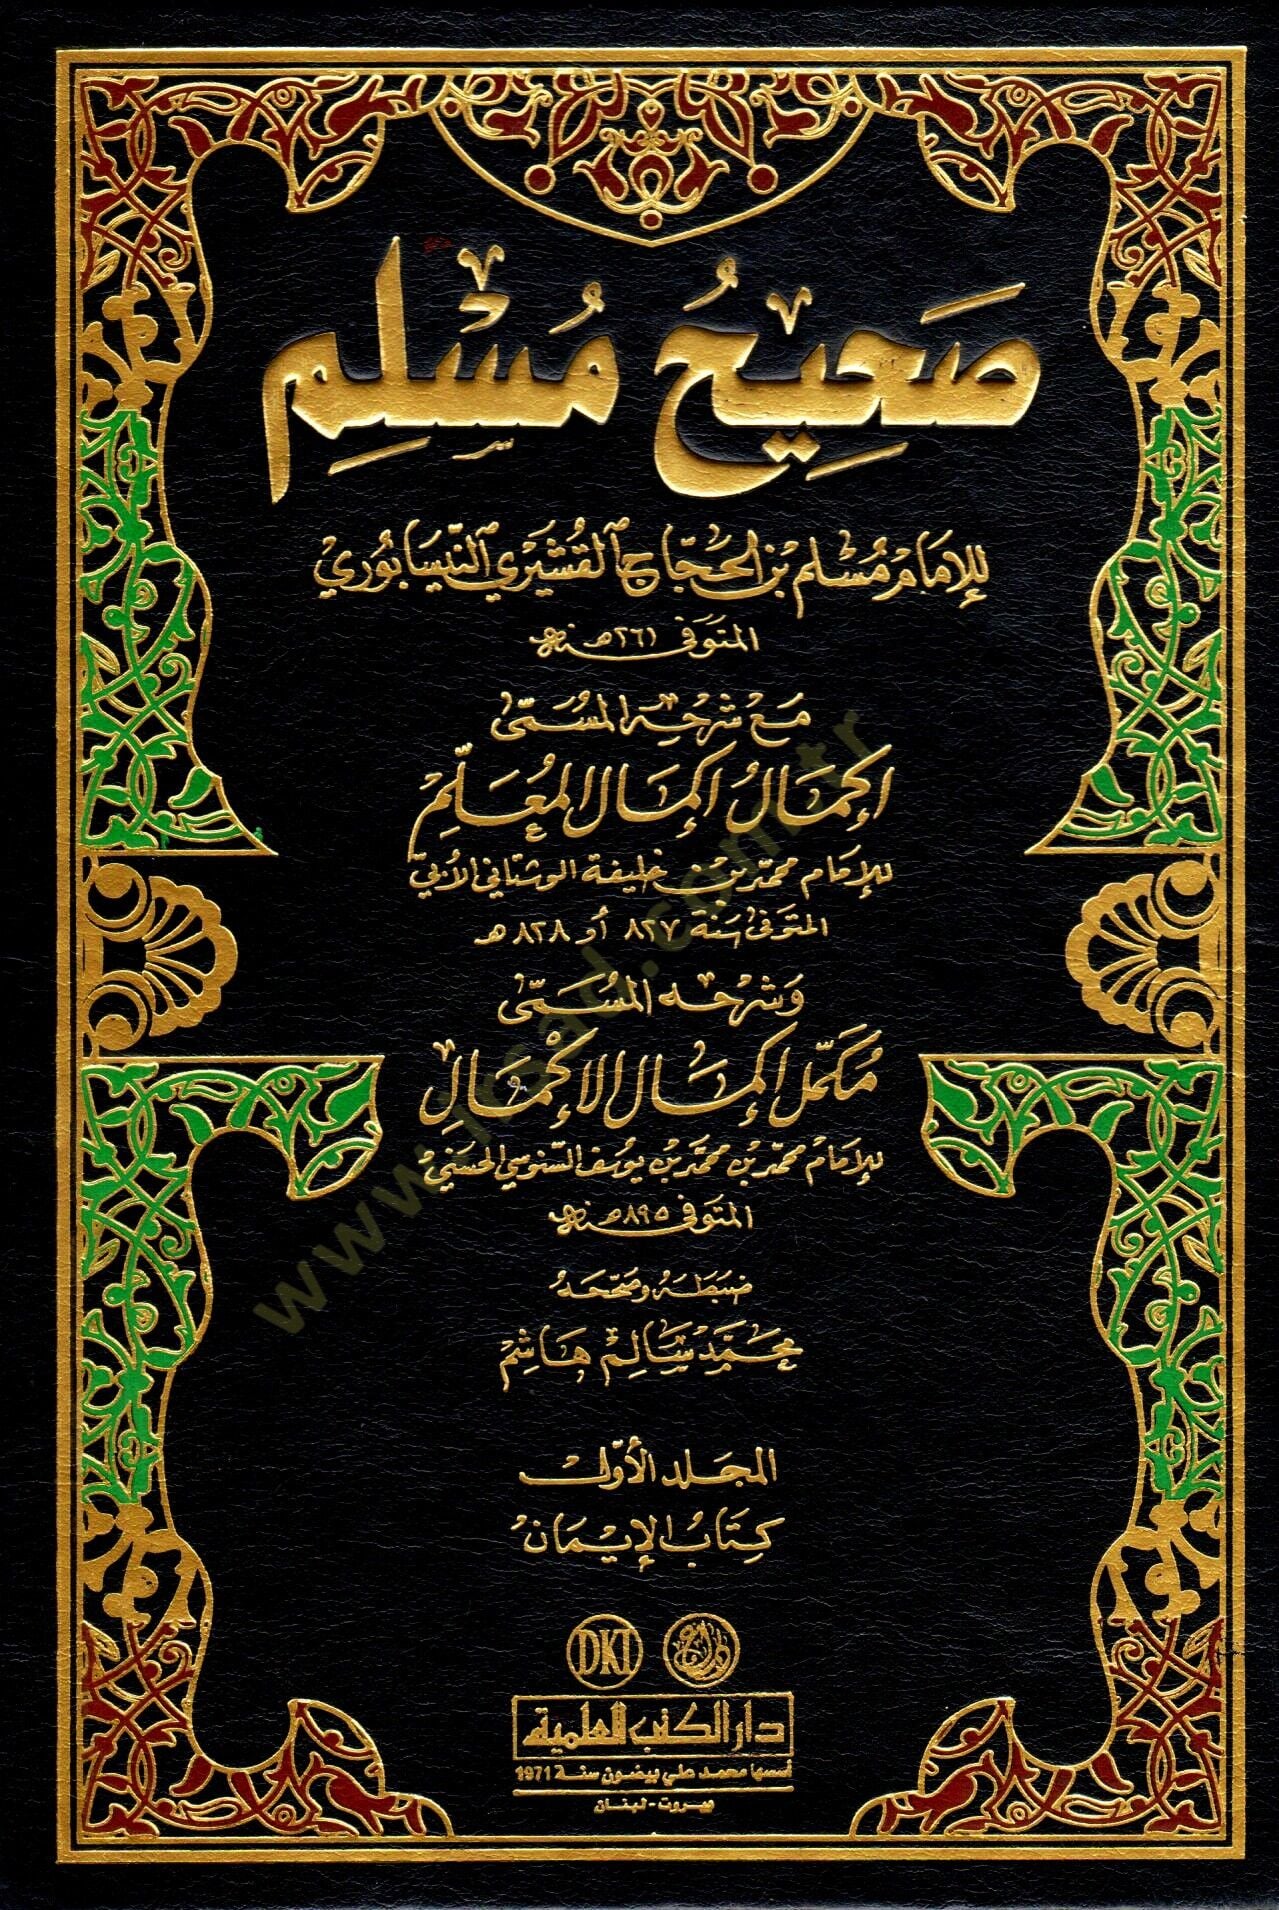 صَحِيحُ مُسْلِم
للإمَام مُسْلم بن الحَجّاج القُشَيري النّيسَابُوري
المتَوَفى سنة ٢٦١هـ
مَعْ شَرحِه المسُمَّى
إكمَالُ إكمَال المُعَلِّمْ
للإمَام محمّد بن خليفة الوشتاني الأُبيّ
المتوَفى سَنة ٨٢٧ أو ٨٢٨هـ
وَشرْحه المُسَمَّى
مُكَمّل إكمَال الإكْمَالِ
للإمَامْ محمّد بن محمَّد بن يوسف السّنوسي الحسَني
المتوَفى سنة ٨٩٥هـ
ضَبَطَهُ وصَحّحَهُ
محَمَّد سَالِمْ هَاشِمْ
المجَلد الأوّل
كِتَابُ الإيْمَانُ
DKI
دار الكتب العلمية
أسسها محمد علي بيضون سنة 1971
بيروت - لبنان
www.irsad.com.tr